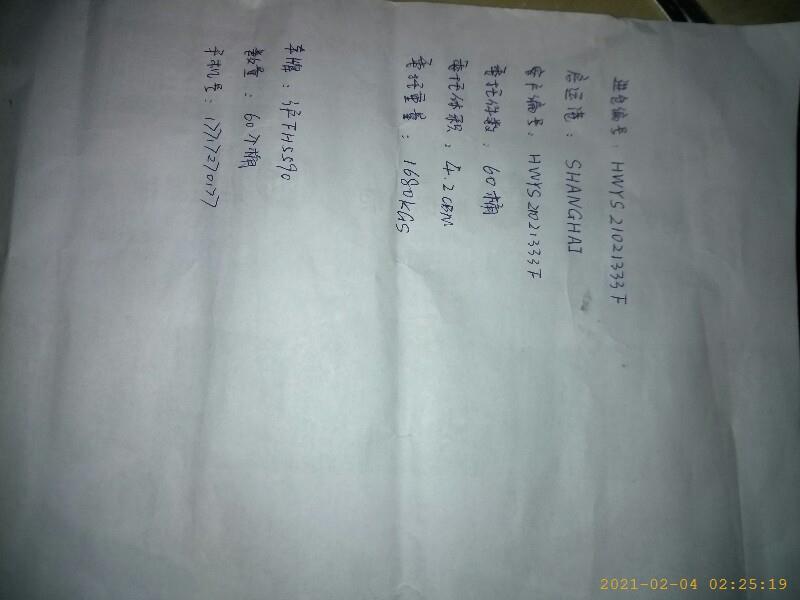 进仓编号：HWYS21021333F
启运港：SHANGHAI
客户编号：HWYS21021333F
委托件数：60桶
委托体积：4.2CBM
委托重量：1680KGS
车牌：沪FH5590
数量：60个桶
手机号：17717270177
2021-02-04 02:25:19